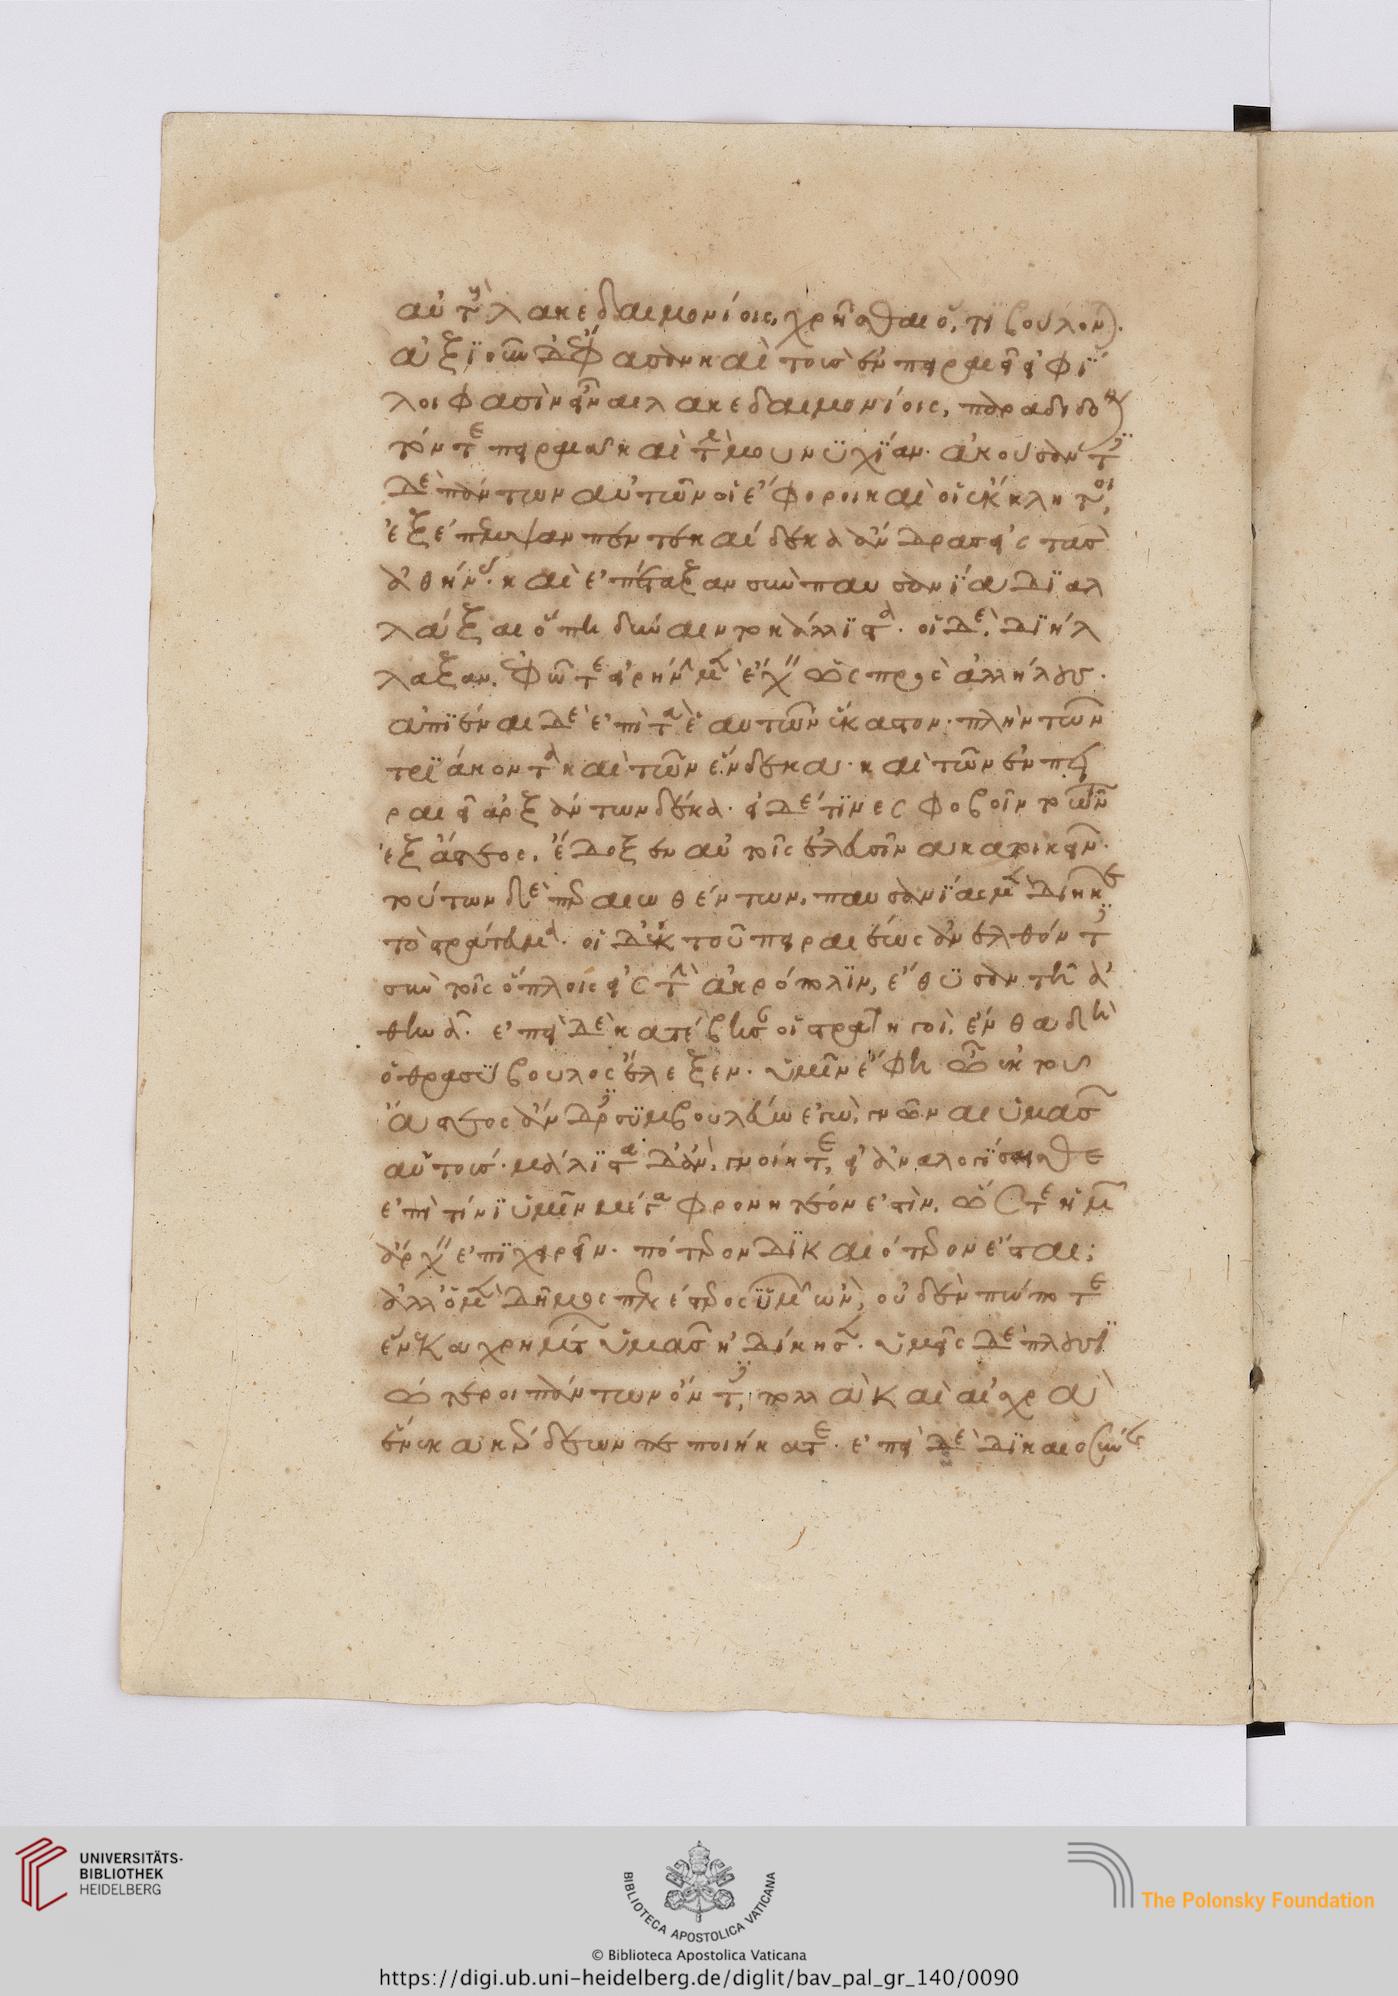 αὐτοὺς λακεδαιμονίοις, χρῆσθαι ὅ,τι βούλονται.
ἀξιοῦν δ' ἔφασαν καὶ τοὺς ἐν πειραιεῖ εἰ φί
λοι φασὶν εἶναι λακεδαιμονίοις, παραδιδόναι
τόν τε πειραιᾶ καὶ τὴν μουνυχίαν. ἀκούσαντες
δὲ πάντων αὐτῶν οἱ ἔφοροι καὶ οἱ ἔκκλητοι,
ἐξέπεμψαν πέντε καὶ δέκα ἄνδρας εἰς τὰς
ἀθήνας. καὶ ἐπέταξαν σὺν παυσανίᾳ διαλ
λάξαι ὅπῃ δύναιντο κάλλιστα. οἱ δὲ, διήλ
λαξαν. ἐφ' ᾧτε εἰρήνην μὲν ἔχειν ὡς πρὸς ἀλλήλους.
ἀπιέναι δὲ ἐπὶ τὰ ἑαυτῶν ἕκαστον. πλὴν τῶν
τριάκοντα καὶ τῶν ἕνδεκα. καὶ τῶν ἐν πει
ραιεῖ ἀρξάντων δέκα. εἰ δέ τινες φοβοῖντο τῶν
ἐξ ἄστεος, ἔδοξεν αὐτοῖς ἐλευσῖνα κατοικεῖν.
τούτων δὲ περαιωθέντων, παυσανίας μὲν διῆκε
τὸ στράτευμα. οἱ δ' ἐκ τοῦ πειραιέως ἀνελθόντες
σὺν τοῖς ὅπλοις εἰς τὴν ἀκρόπολιν, ἔθυσαν τῇ ἀ
θηνᾷ. ἐπεὶ δὲ κατέβησαν οἱ στρατηγοὶ, ἔνθα δὴ
ὁ θρασύβουλος ἔλεξεν. ὑμῖν ἔφη ὦ ἐκ τοῦ
ἄστεος ἄνδρες συμβουλεύω ἐγὼ, γνῶναι ὑμᾶς
αὐτούς. μάλιστα δ' ἂν, γνοίητε, εἰ ἀναλογίσαισθε
ἐπὶ τίνι ὑμῖν μέγα φρονητέον ἐστὶν, ὥστε ἡμῶν
ἄρχειν ἐπιχειρεῖν. πότερον δικαιότεροί ἐστε;
ἀλλ' ὁ μὲν δῆμος πενέστερος ὑμῶν ὢν, οὐδὲν πώποτε
ἕνεκα χρημάτων ὑμᾶς ἠδίκησεν. ὑμεῖς δὲ πλουσι
ώτεροι πάντων ὄντες, πολλὰ καὶ αἰσχρὰ
ἕνεκα κερδέων πεποιήκατε. ἐπεὶ δὲ δικαιοσύνης
UNIVERSITÄTS-
BIBLIOTHEK
HEIDELBERG
BIBLIOTECA APOSTOLICA VATICANA
The Polonsky Foundation
© Biblioteca Apostolica Vaticana
https://digi.ub.uni-heidelberg.de/diglit/bav_pal_gr_140/0090